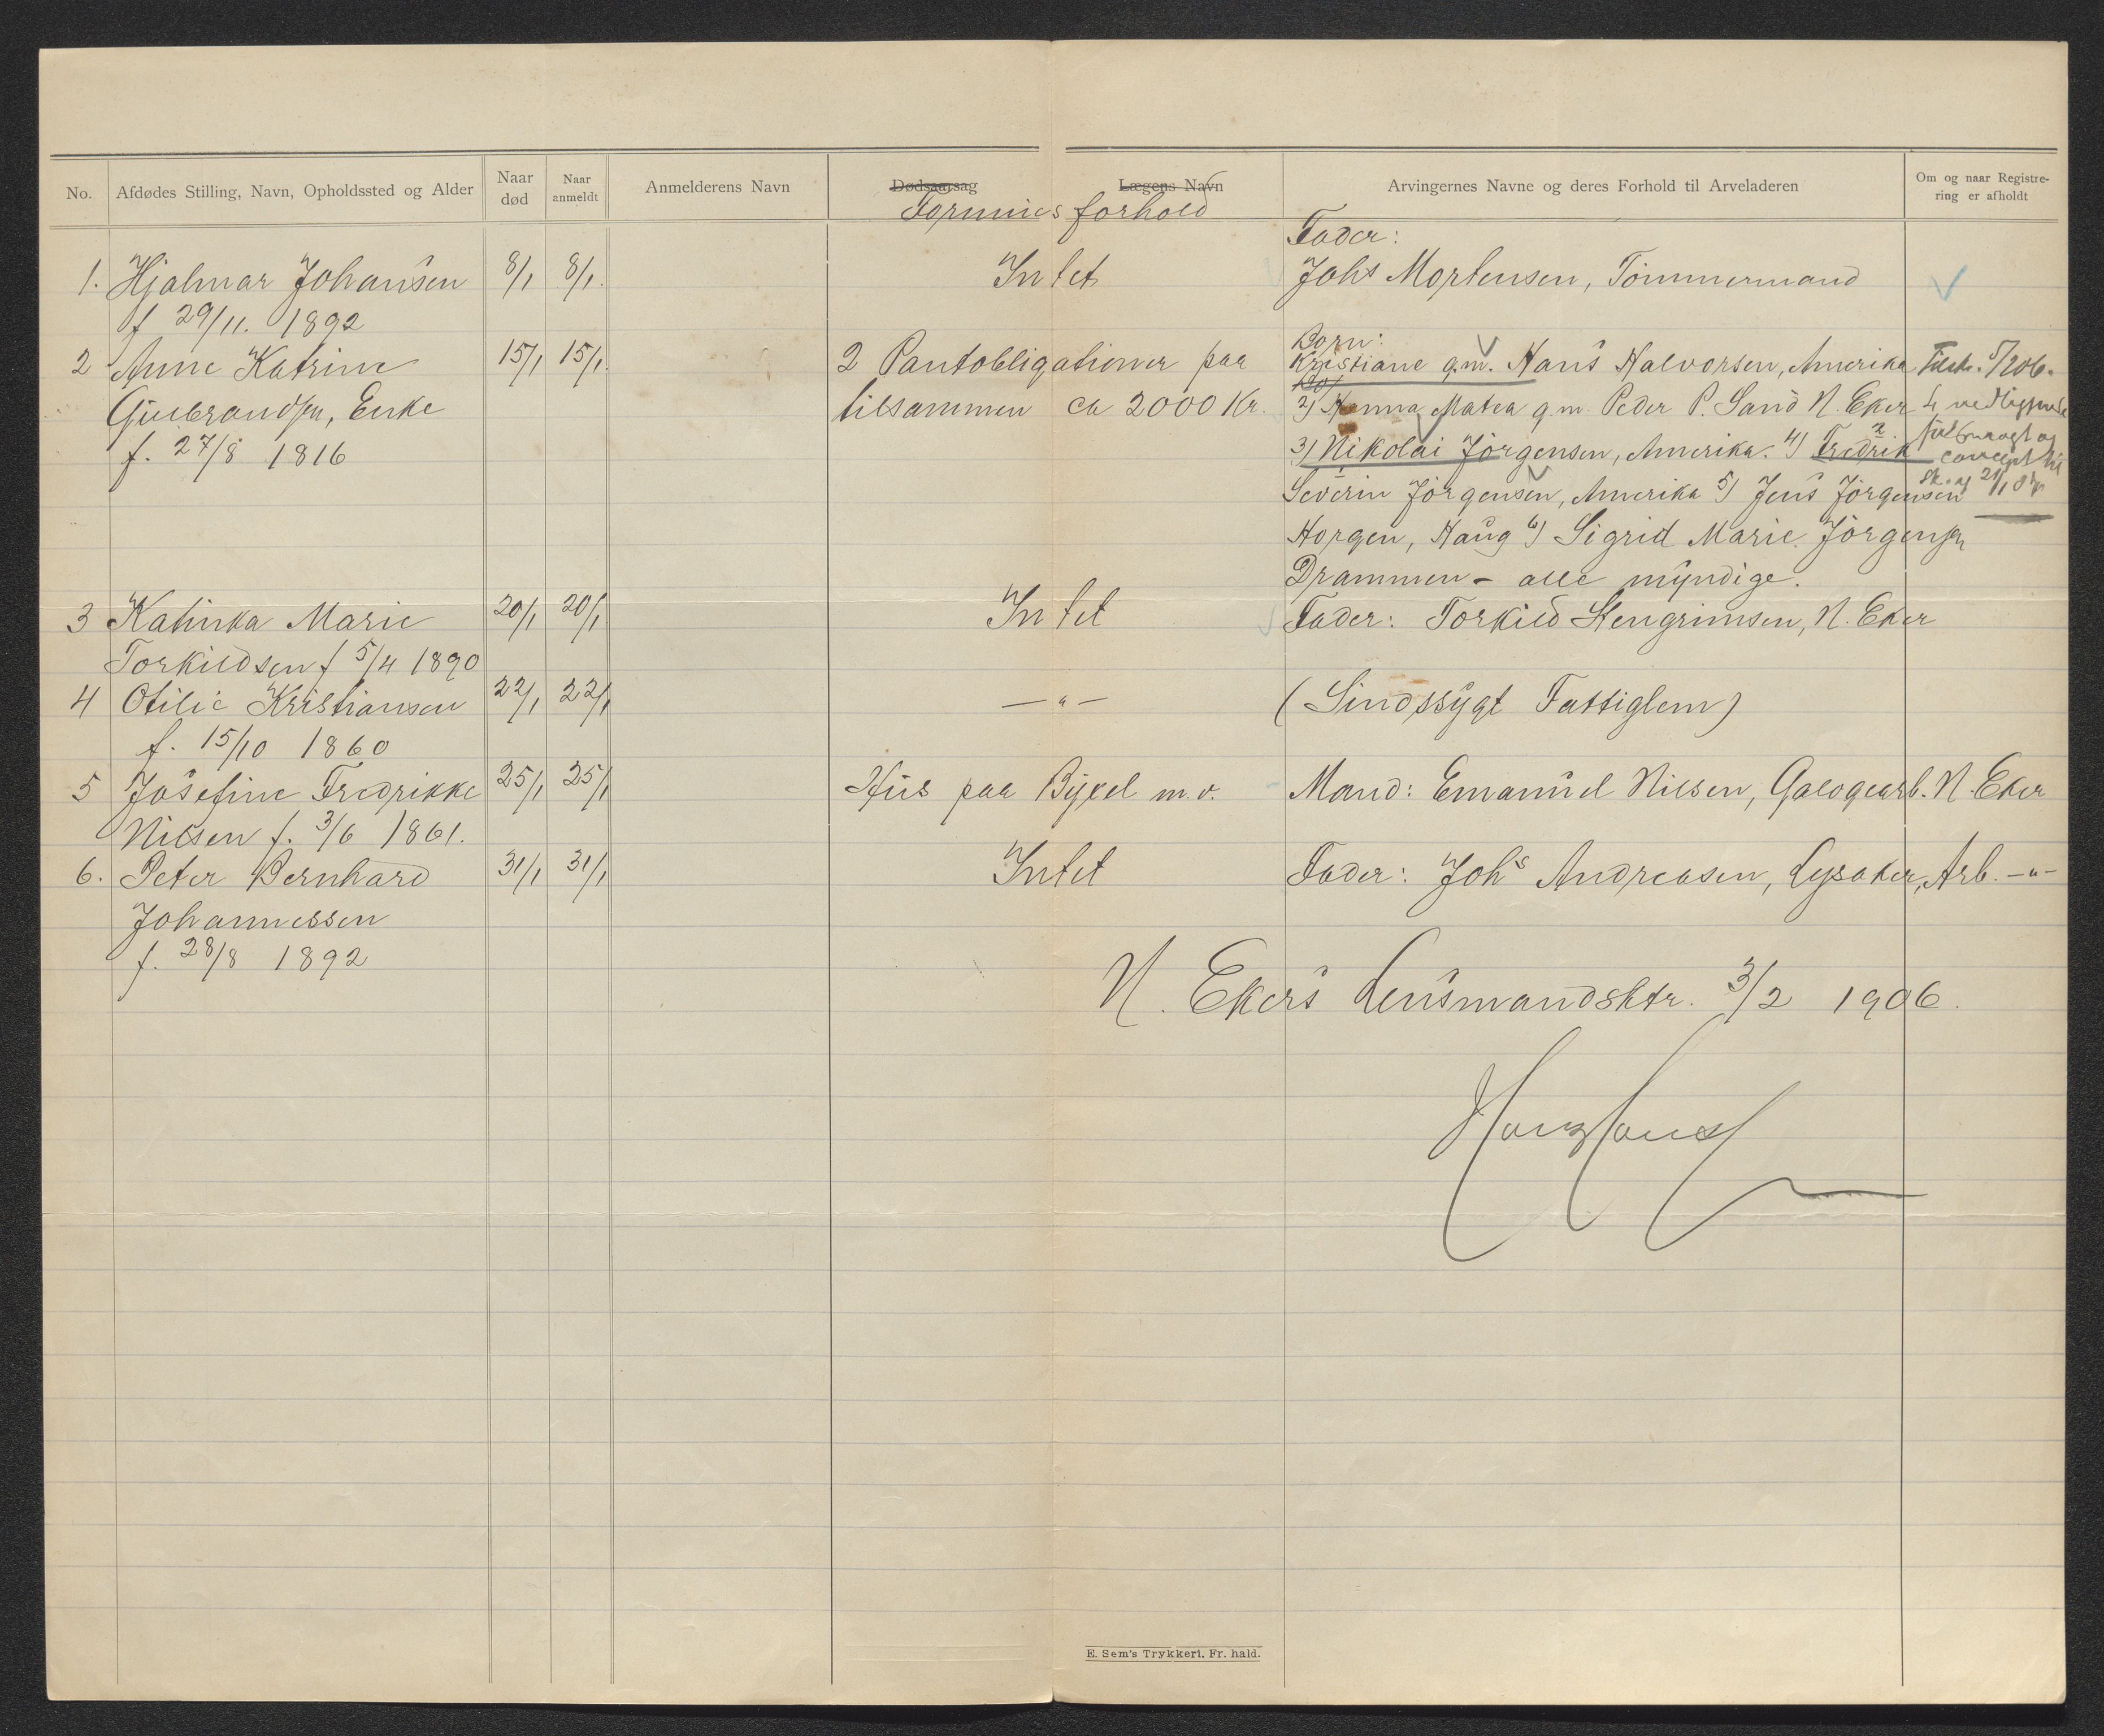 No.
Afdødes Stilling, Navn, Opholdssted og Alder
Naar død
Naar anmeldt
Anmelderens Navn
Dødsaarsag
Lægens Navn
Formues forhold
Arvingernes Navne og deres Forhold til Arveladeren
Om og naar Registre-
ring er afholdt
1. Hjalmar Johansen 8/1 8/1. Intet Fader:
Johs Mortensen, Tømmermand
f 29/11. 1892
2 Anne Katrine 15/1 15/1. 2 Pantobligationer paa Børn:
Kristiane g.m. Hans Halvorsen, Amerika
Gulbrandsen, Enke tilsammen ca 2000 Kr. 2) Hanna Matea g.m. Peder P. Sand N. Eker
f. 27/8 1816 3) Nikolai Jörgensen, Amerika. 4) Fredrik
Severin Jörgensen, Amerika 5) Jens Jörgensen
Horgen, Haug 6) Sigrid Marie Jörgensen
Drammen - alle myndige.
3 Katinka Marie 20/1 20/1 Intet Fader: Torkild Stengrimsen, N. Eker
Torkildsen f 5/4 1890
4 Otilie Kristiansen 22/1 22/1 — " — (Sindssygt Fattiglem)
f. 15/10 1860
5 Josefine Fredrikke 25/1 25/1 Hus paa Bykel m.v. Mand: Emanuel Nilsen, N. Eker
Nilsen f. 3/6 1861.
6. Peter Bernhard 31/1 31/1 Intet Fader: Johs Andreasen, Lysaker, Arb. —"—
Johannessen
f. 28/8 1892
N. Ekers Lensmandsktr. 3/2 1906.
E. Sem's Trykkeri, Fr.hald.